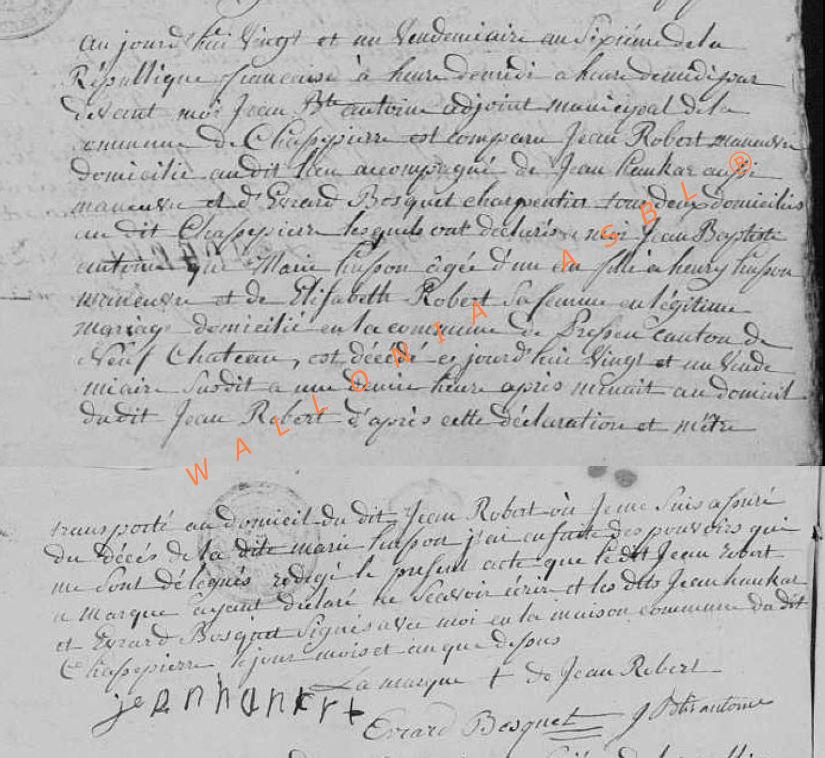 au jourd'hui vingt et un vendemiaire an sixiéme de la
République francaise à heure de midi par
devant moi Jean Bte antoine adjoint municipal de la
commune de Chassepierre est comparu Jean Robert manœuvre
domicilié audit lieu accompagné de Jean hankar aussi
manœuvre et d'Evrard Bosquet charpentier tous deux domiciliés
au dit Chassepierre lesquels ont déclarés a moi Jean Baptiste
antoine que Marie husson âgée d'un an fille a henry husson
manœuvre et de Elisabeth Robert sa femme en légitime
mariage domicilié en la commune de canton de
Neuf Chateau, est décédé ce jourd'hui vingt et un vende
miaire susdit a une heure après minuit au domicil
du dit Jean Robert d'après cette déclaration et m'être
transporté au domicil du dit Jean Robert où je me suis assuré
du décés de la dite marie husson j'ai en suite des pouvoirs qui
me sont délegués redigé le present acte que le dit Jean robert
a marqué ayant déclaré ne scavoir écrir et les dits Jean hankar
et Evrard Bosquet signés avec moi en la maison commune du dit
Chassepierre le jour mois et an que dessus
La marque + de Jean Robert
jean hankart
Evrard Bosquet J Bte antoine
WALLONIA ASBL ®